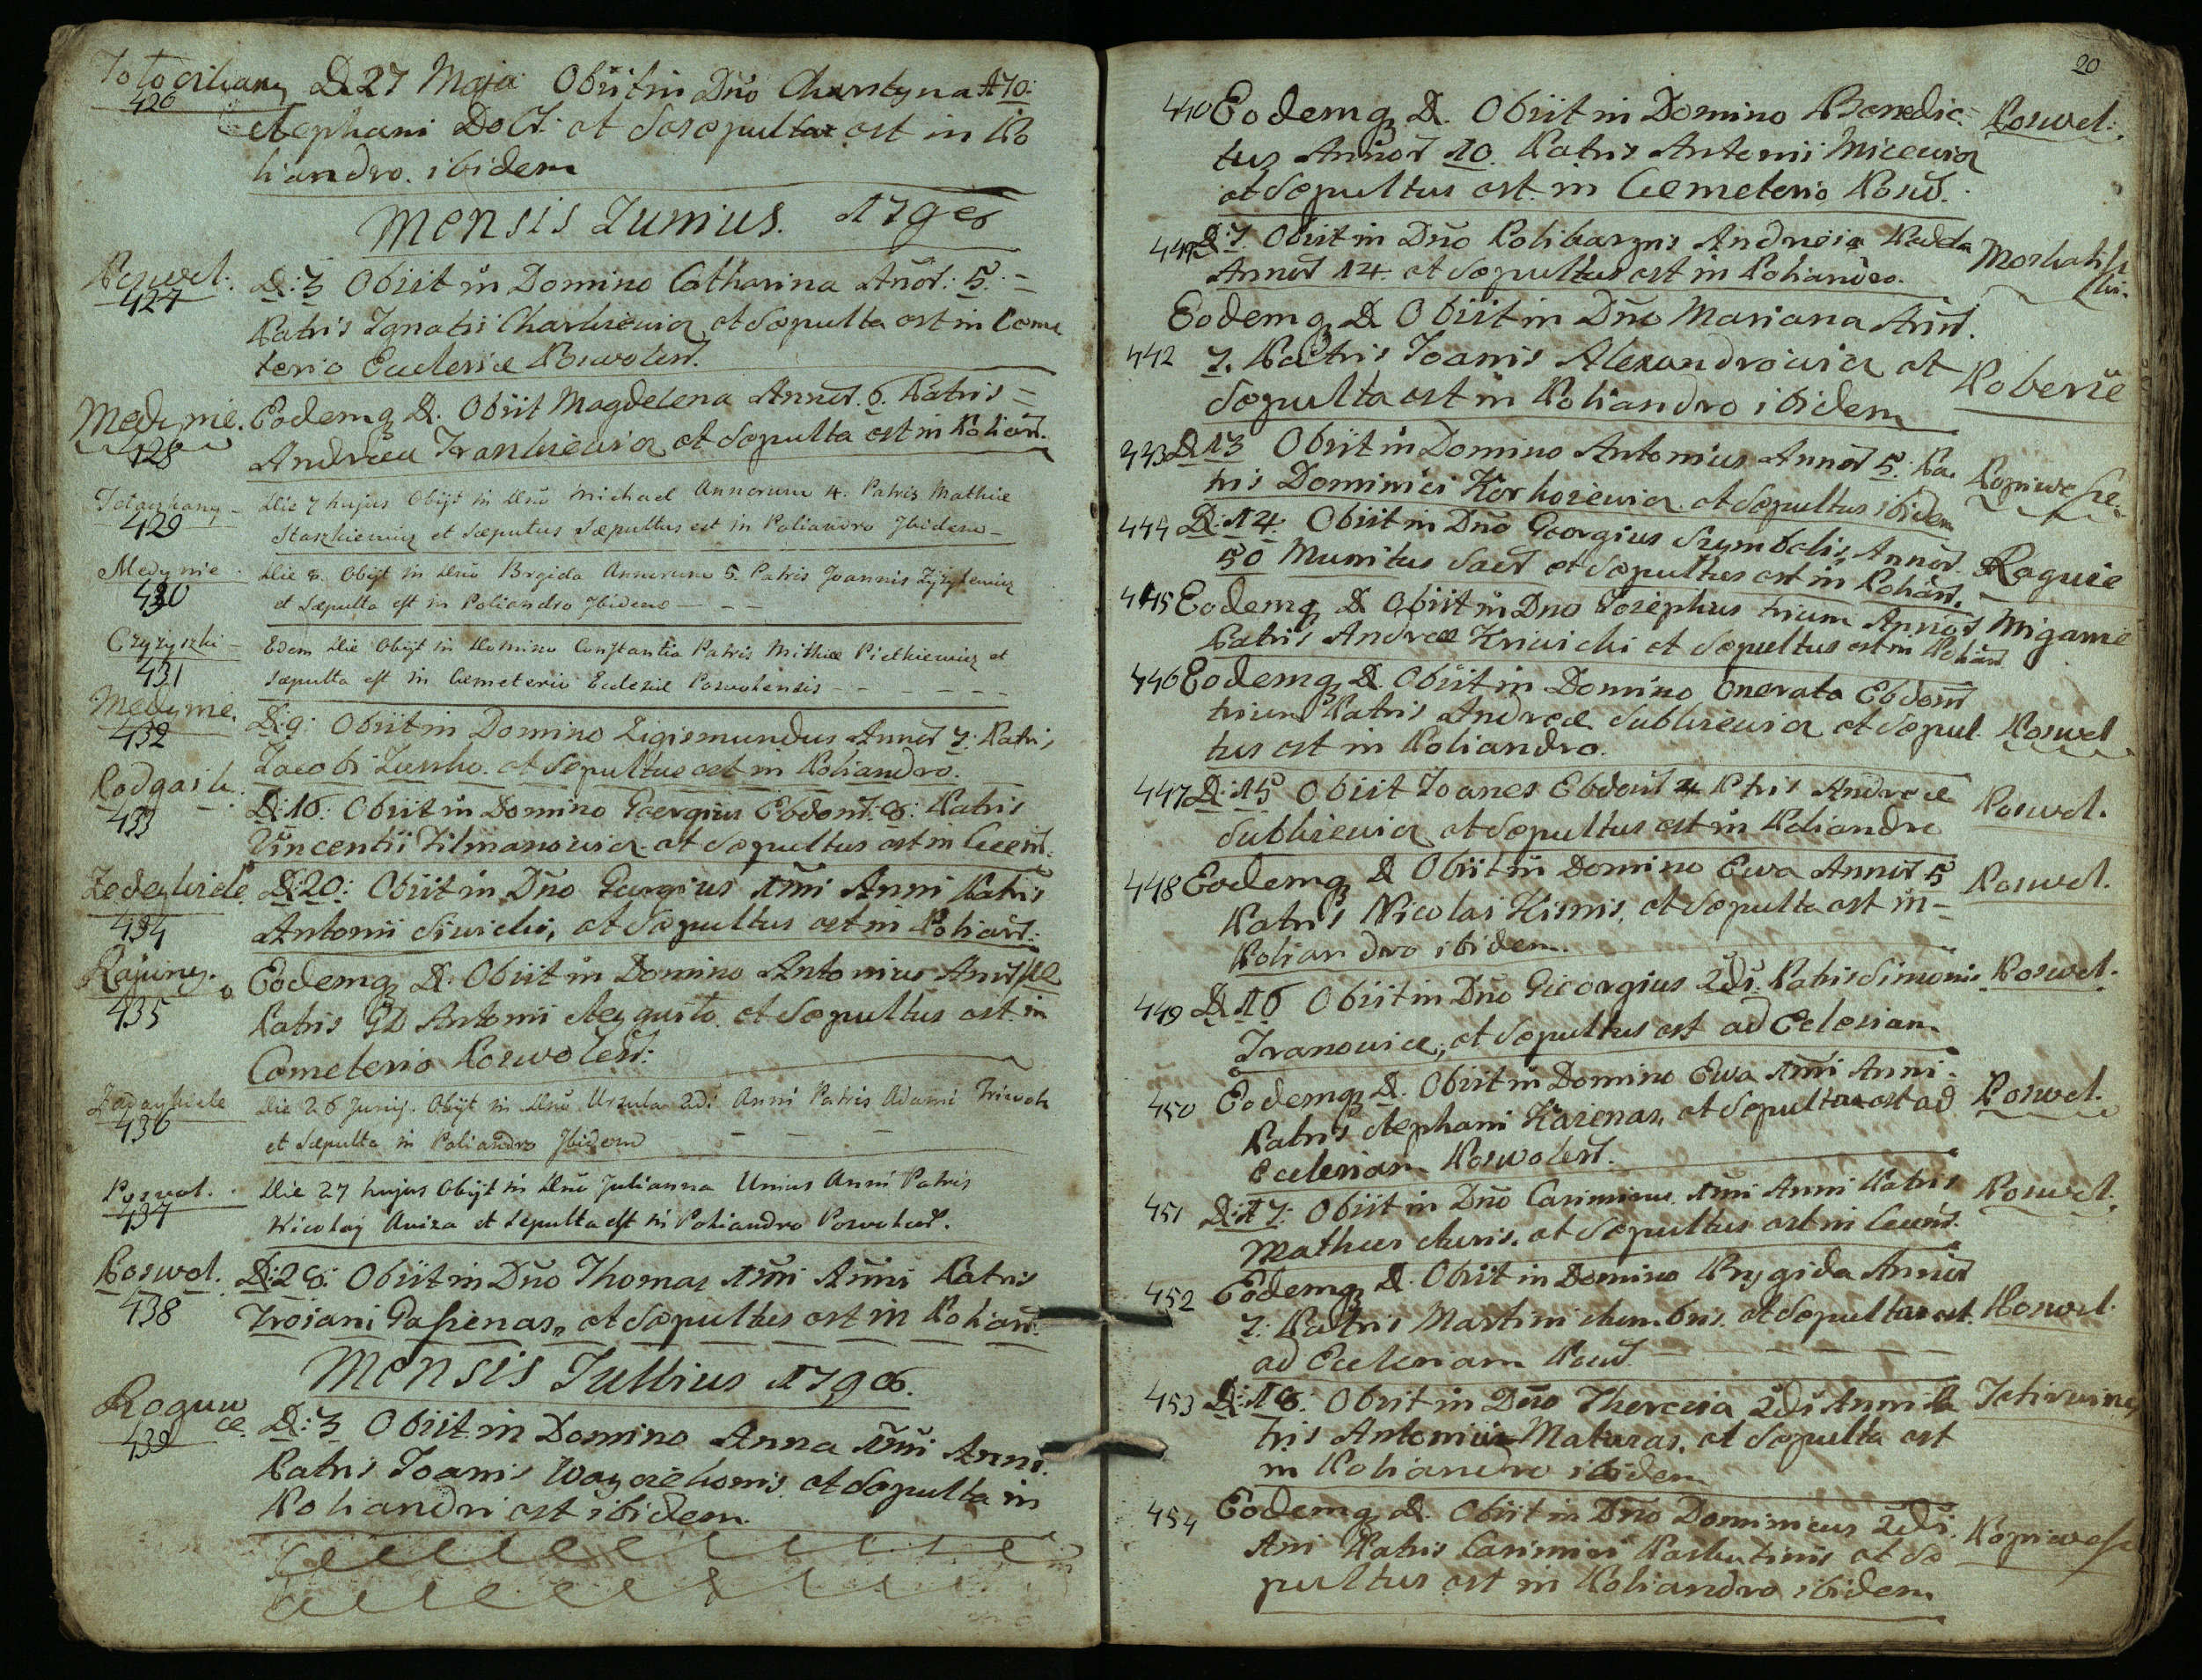 426
D. 27 Maja Obiit in Dno Chrystyna A 70:
Stephani Dolt: et Sosepultae est in Po
liandro. ibidem
Mensis Iunius. 1798
Poswol.
427
D: 3 Obiit in Domino Catharina Anōr: 5. =
Patris Ignatii Charkiewia et Sepulta est in Come
terio Ecclesiæ Poswolens.
Medynie.
428
Eodemq D. Obiit Magdelena Annor. 6. Patris =
Andræa Frankiewia et Sepulta est in Poliand.
429
Die 7 hujus Obijt in Dno Michael Annorum 4. Patris Mathiæ
Staszkiewicz et Sæputus Sæpultus est in Poliandro Ibidem –
Medynie.
430
Die 8. Obijt in Dno Brgida Annorum 5. Patris Joannis Zyzylewicz
et Sæpulta est in Poliandro Ibidem — – –
Czyzyszki –
431
Edem Die Obijt in Domino Constantia Patris Mathiæ Pietkiewicz et
Sæpulta est in Cemeterio Eclesiæ Poswolensis – – – – – –
Medynie.
432
D: 9: Obiit in Domino Zigismundus Annor 7: Patris
Iacobi Zunko. et Sepultus est in Poliandro.
Podgaik.
433
D: 16: Obiit in Domino Goergius Ebdom: 8: Patris
Vincentii Tilmanowia et Sepultus est in Ceem.
434
D: 20: Obiit in Dno Gurgius 1mi Anni Patris
Antonii Siwicki, et Sepultus est in Poliand:
Rajuny.
435
Eodemq D. Obiit in Domino Antonius Annor
Patris GD Antonii Aeygusto et Sepultus est in
Cometerio Poswolens:
436
Die 26 Junij. Obijt in Dno Urzula 2di Anni Patris Adami Triwok
et Sæpulta in Poliandro Ibidem – – –
Poswol.
437
Die 27 hujus Obijt in Dno Julianna Unius Anni Patris
Nicolaj Aviza et Sepulta est in Poliandro Poswolens.
Poswol.
438
D: 28: Obiit in Dno Thomas 1mi Anni Patris
Troiani Gasienas, et Sepultus est in Poliand:
Mensis Iullius 1798.
Roguw
ce.
439
D: 3 Obiit in Domino Anna 1mi Anni.
Patris Ioanis Woyciehonis et Sepulta in
Poliandri est ibidem.
20
440 Eodemq D. Obiit in Domino Benedic= Poswol:
tus Annor 10. Patris Antonii Micewia
et Sepultus est. in Cemeterio Posw.
441 D: 7. Obiit in Dno Polibargus Andreia
Annor 14. et Sepultus est in Poliandro.
Eodemq D Obiit in Dno Mariana Anor.
442 7. Patris Ioanis Alexandrowia et Koberie
Sepulta est in Poliandro ibidem
443 D 13 Obiit in Domino Antonius Annor 5. Pa
tris Dominici Korkoziewia et Sepultus ibidem
444 D: 14: Obiit in Dno Georgius Szymbelis, Annor. Roguie
50 Munitus Sacr et Sepultus est in Poliand.
445 Eodemq D Obiit in Dno Iosephus trium Annor Miganie
Patris Andreæ Kriwicki et Sepultus est in Poliand
446 Eodemq D. Obiit in Domino Onerata Ebdom
trium Patris Andreæ Subkiewia et Sepul Poswol
tus est in Poliandro.
447 D: 15 Obiit Ioanes Ebdom 4 Ptris Andreæ Poswol.
Subkiewia et Sepultus est in Poliandro
448 Eodemq D Obiit in Domino Ewa Annor 5 Poswol.
Patris Nicolai Kisnis, et Sepulta est in –
Poliandro ibidem.
449 D 16 Obiit in Dno Gieorgius 2di. Patris Simonis Poswol.
Iwanowice, et Sepultus est ad Eclesiam
450 Eodemq D. Obiit in Domino Ewa 1mi Anni. Poswol.
Patris Stephani Kazienas, et Sepulta est ad
Ecclesiam Poswolens.
451 D: 17: Obiit in Dno Casimirus 1mi Anni Patris Poswol:
Matheus et Sepultus est in Ceem.
452 Eodemq D. Obiit in Domino Brygida Annor
7: Patris Martini et Sepultus est. Poswol.
ad Ecclesiam Posw. – – – – – –
453 D: 18: Obiit in Dno Theresia 2di Anni Pa
tris Antonii Maturas, et Sepulta est
in Poliandro ibidem
454 Eodemq D. Obiit in Dno Dominicus 2di.
Ani Patris Casimiri Parkutinis et Se
pultus est in Poliandro ibidem